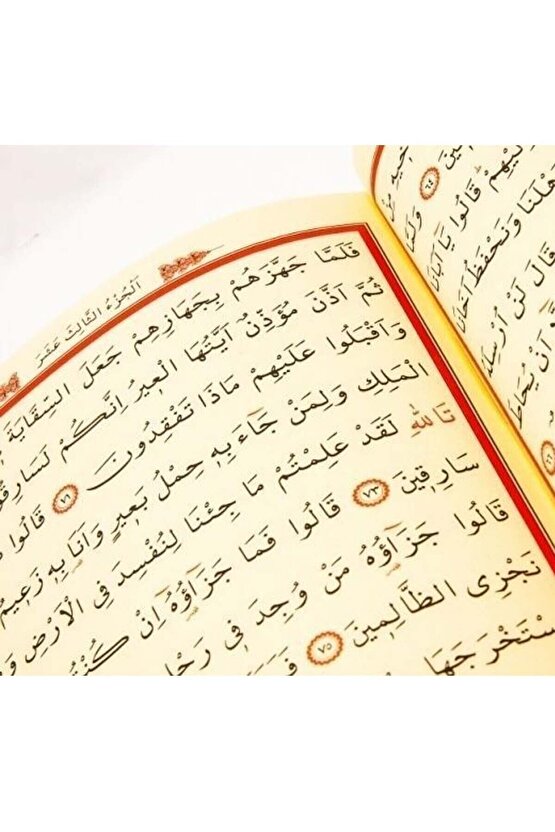 اَلْجُزْءُ الثَّالِثَ عَشَرَ
فَلَمَّا جَهَّزَهُمْ بِجَهَازِهِمْ جَعَلَ السِّقَايَةَ
ثُمَّ اَذَّنَ مُؤَذِّنٌ اَيَّتُهَا الْعٖيرُ اِنَّكُمْ لَسَارِقُو
وَاَقْبَلُوا عَلَيْهِمْ مَاذَا تَفْقِدُونَ ﴿٧١﴾ قَالُوا
الْمَلِكِ وَلِمَنْ جَٓاءَ بِهٖ حِمْلُ بَعٖيرٍ وَاَنَا بِهٖ زَعٖيمٌ
تَاللّٰهِ لَقَدْ عَلِمْتُمْ مَا جِئْنَا لِنُفْسِدَ فِي الْاَرْضِ وَ
سَارِقٖينَ ﴿٧٣﴾ قَالُوا فَمَا جَزَٓاؤُ۬هُٓ اِنْ كُنْتُ
قَالُوا جَزَٓاؤُ۬هُ مَنْ وُجِدَ فٖي رَحْلِ
نَجْزِي الظَّالِمٖينَ ﴿٧٥﴾ فَبَدَ
سْتَخْرَجَهَا
اَخٖيهِ مِنْ
﴿٦٤﴾ وَلَمَّا
اِلَيْهِمْ قَالُوا يَٓا اَبَانَا
هْلَنَا وَنَحْفَظُ اَخَانَا
قَالَ لَنْ اُرْسِلَهُ
اَنْ يُحَاطَ